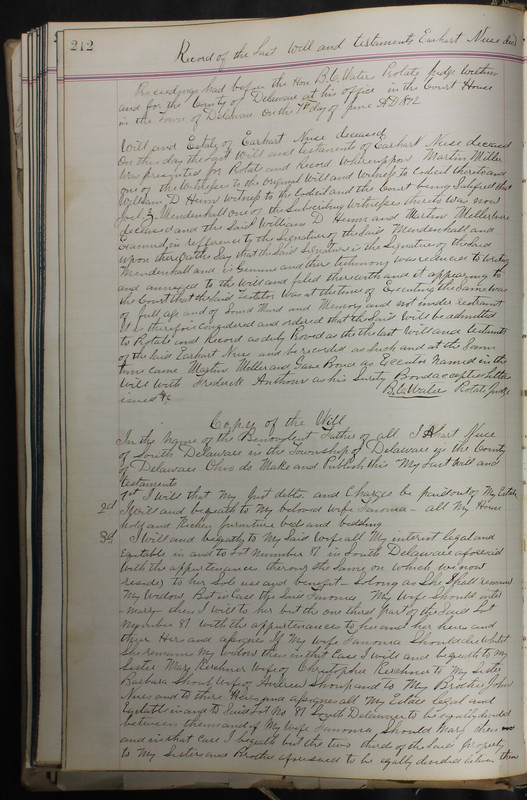 212
Record of the Last Will and testaments Earhart Nuse decd
Proceedings had before the Hon B.C. Waters Probate Judge Within
and for the County of Delaware at his office in the Court House
in the Town of Delaware on the 7th day of June AD 1872
Will and Estate of Earhart Nuse deceased
On this day the Last Will and testaments of Earhart Nuse deceased
Was presented for Robate and Record Whereupon Martin Miller
one of the Witnesses to the original Will and Witness to Codicil thereto and
William D Heim Witness to the Codicil and the Court being Satisfied that
Joel Z. Mendenhall one of the Subscribing Witnesses thereto was now
deceased and the Said William D Heim and Martin Miller were
Examined in reference to the Signature of the Said Mendenhall and
upon there oaths Say that the Said Signature is the Signature of the Said
Mendenhall and is Genuine and there testimony was reduced to Writing
and annexed to the Will and filed therewith and it appearing to
the Court that the Said Testator Was at the time of Executing the Same Was
of full age and of Sound Mind and Memory and not under restraint
It is therefore Considered and ordered that the Said Will be admitted
to Robate and Record as duly Proved as the the last Will and testiments
of the Said Earhart Nuse and be recorded as Such and at the Same
time came Martin Miller and Gave Bond as Executor Named in the
Will With Frederick Anthoni as his Surety Bond accepted letters
issued &c
B.C. Waters Robate Judge
Copy of the Will
In the Name of the Benevolent Father of all I Ehart Nuse
of South Delaware in the Township of Delaware in the County
of Delaware Ohio do Make and Publish this My Last Will and
testaments
1st I Will that My Just debts and Charges be paid out of My Estate
2d I Will and bequeath to My beloved Wife - all My House
hold and Kitchen furniture beds and bedding
3d I Will and bequeath to My Said Wife all My interest legal and
Equitable in and to Lot Number 87 in South Delaware aforesaid
With the appurtenances thereon the Same on which we now
reside to her Sole use and benefit So long as She Shall remain
My Widow, But in Case the Said My Wife Should inter
-Mary- then I Will to her but the one third Part of the Said Lot
Number 87 With the appurtenances to her and her heirs and
there Heirs and assignes If My Wife Should die Whilst
She remains My Widow then in that Case I Will and bequeath to My
Sister Mary Kerchner Wife of Christopher Kerchner to My Sister
Barbara Shoub Wife of Andrew Shoup and to My Brother John
Nuse and to there Heires and assignes all My Estate legal and
Equitable in and to Said Lot No 87 South Delaware to be equally divided
between them and if My Wife Should Mary then
and in that Case I bequeath but the two third of the Said Property
to My Sisters and Brother aforesaid to be equally divided between them